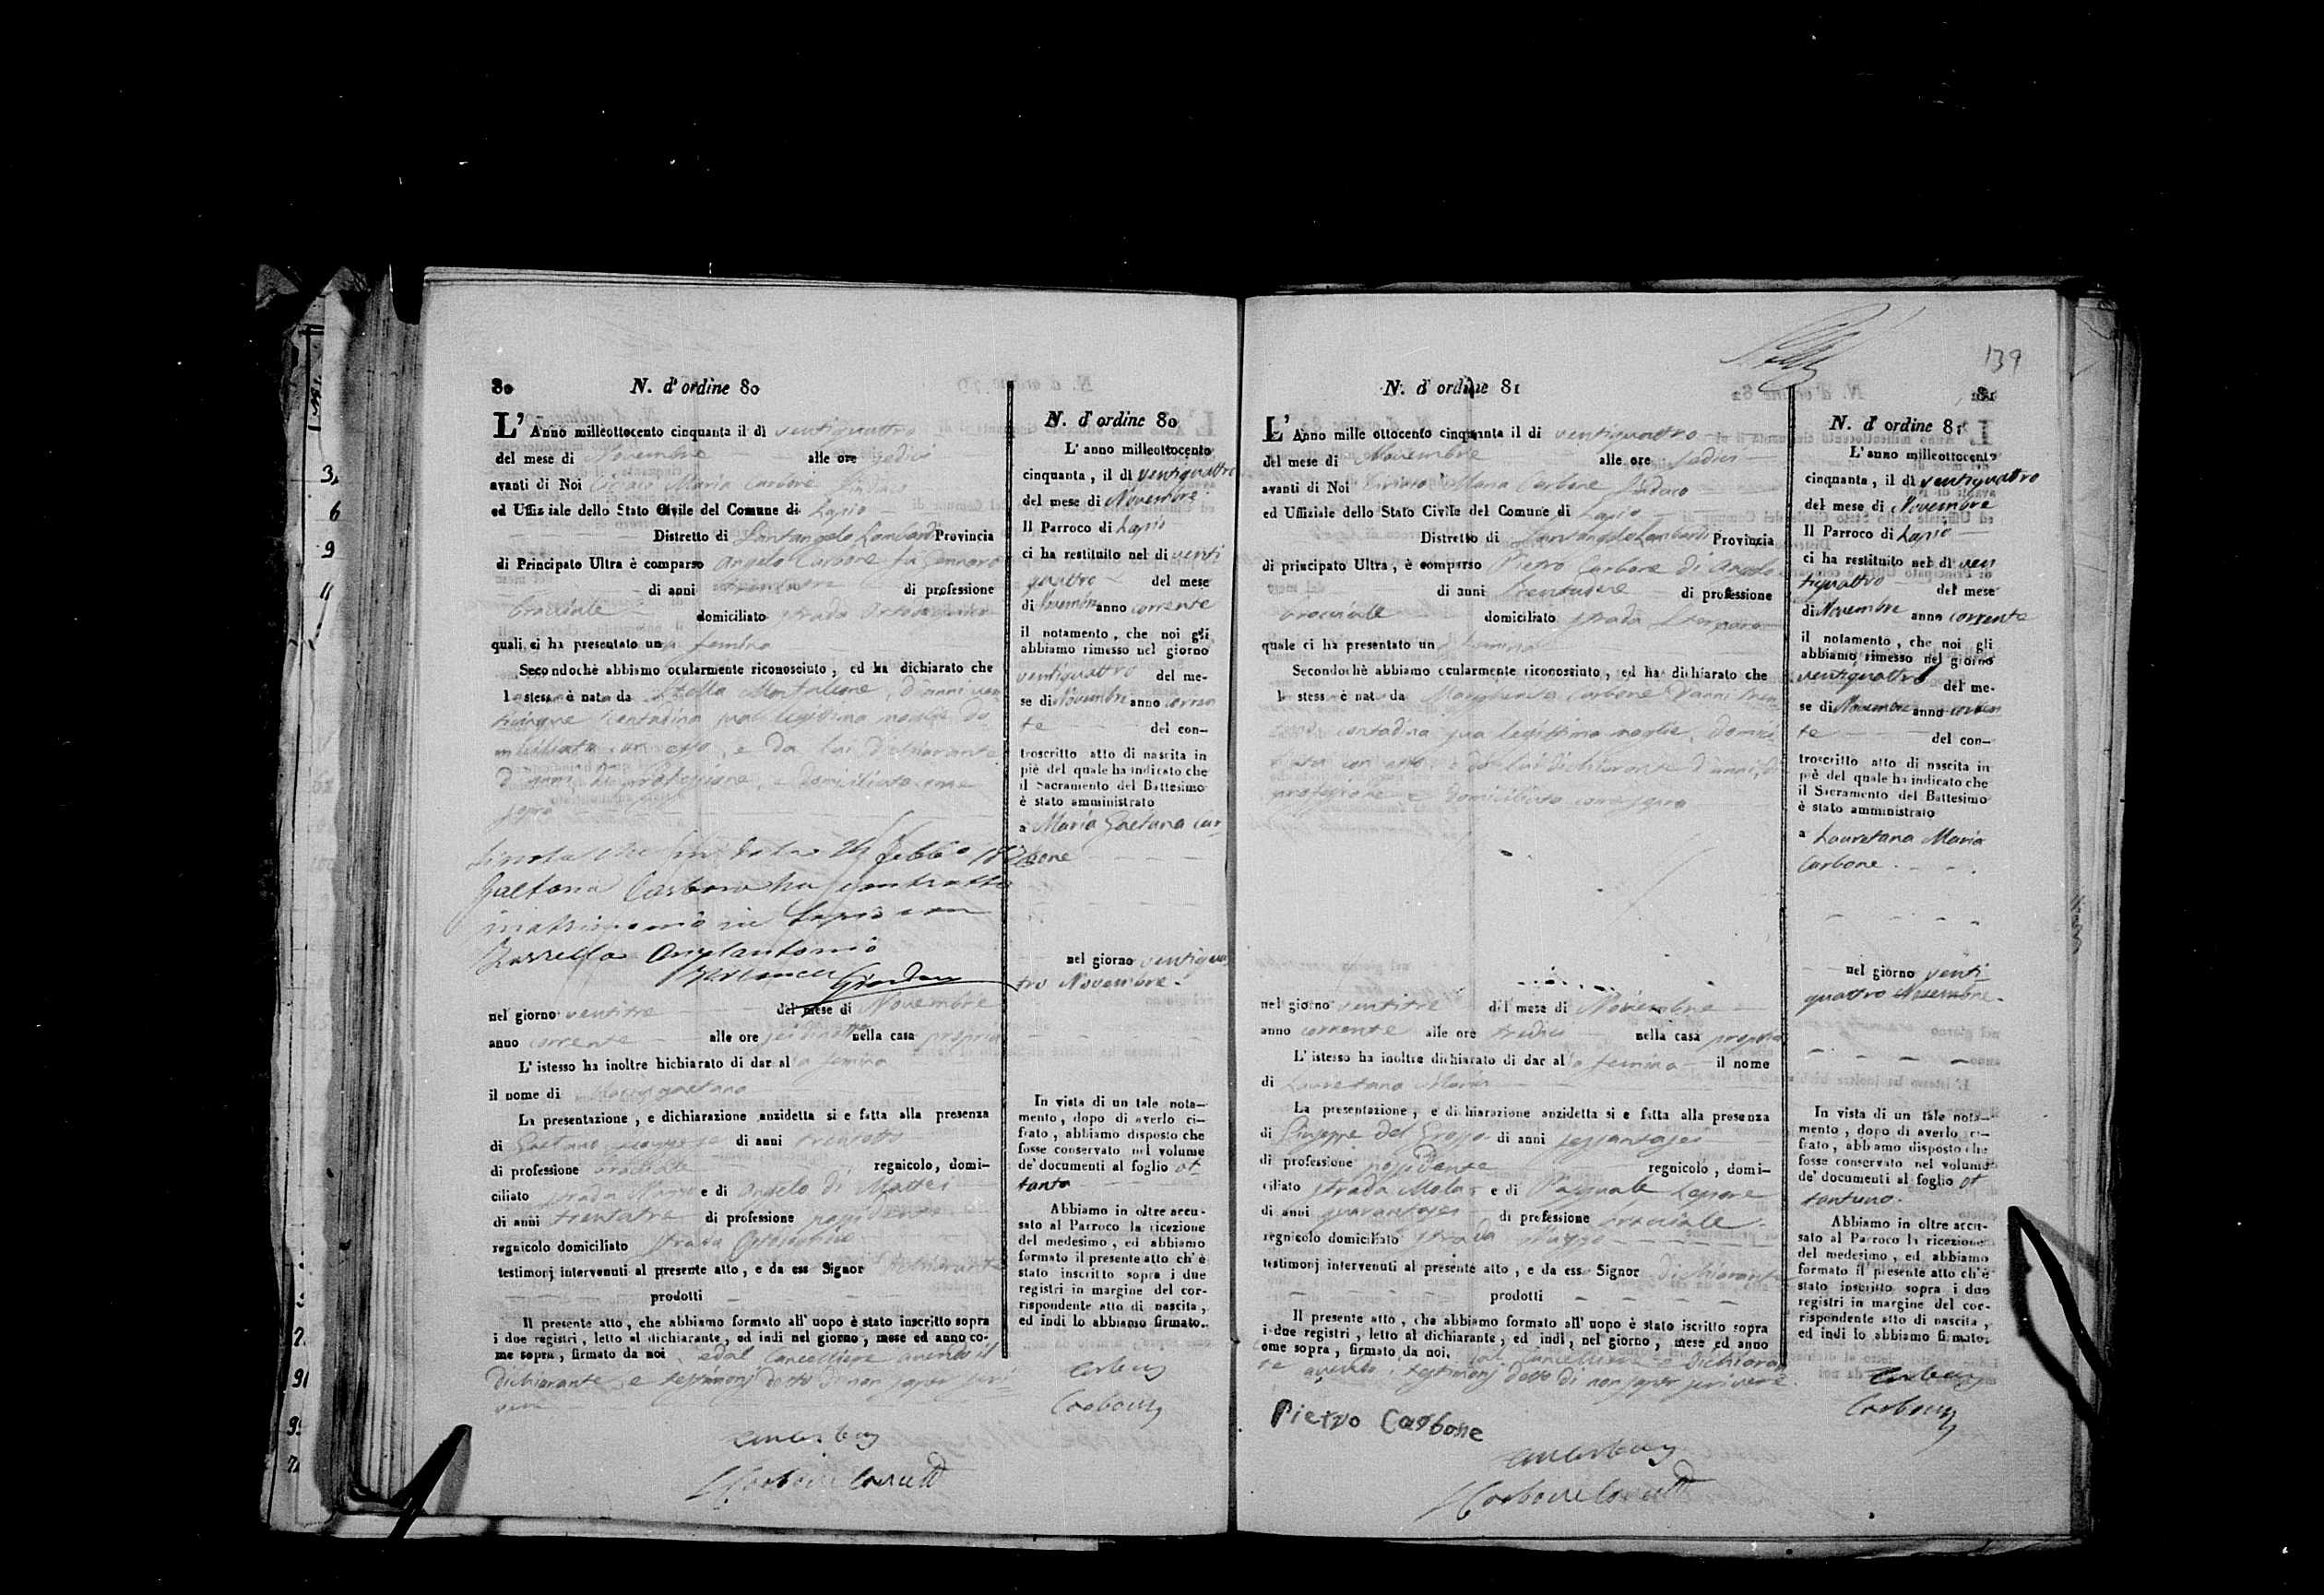 80 N. d'ordine 80
L' Anno milleottocento cinquanta il dì ventiquattro
del mese di Novembre alle ore sedici
avanti di Noi Ciriaco Maria Carbone Sindaco
ed Uffiziale dello Stato Civile del Comune di Lapio
Distretto di Santangelo Lombardi Provincia
di Principato Ultra è comparso Angelo Carbone fu Gennaro
di anni di professione
bracciale domiciliato strada
quali ci ha presentato una femina
Secondochè abbiamo ocularmente riconosciuto, ed ha dichiarato che
l stess è nat da Stella d'anni ven
contadina sua legittima moglie do
miciliata con esso, e da lui dichiarante
d'anni, di professione, e domiciliato come
sopra
24 Febb.o
Gaetana Carbone ha contratto
matrimonio in Lapio con
Angelantonio
nel giorno ventitre del mese di Novembre
anno corrente alle ore nella casa propria
L'istesso ha inoltre hichiarato di dar alla femina
il nome di Maria Gaetana
La presentazione, e dichiarazione anzidetta si e fatta alla presenza
di Gaetano di anni trentotto
di professione bracciale regnicolo, domi-
ciliato strada e di Angelo di Mattei
di anni trentatre di professione possidente
regnicolo domiciliato strada
testimonj intervenuti al presente atto, e da ess Signor dichiarante
prodotti
Il presente atto, che abbiamo formato all'uopo è stato inscritto sopra
i due registri, letto al dichiarante, ed indi nel giorno, mese ed anno co-
me sopra, firmato da noi, e dal Cancelliere avendo il
dichiarante, e testimonj detto di non saper scri
vere
N. d'ordine 80
L'anno milleottocento
cinquanta, il dì ventiquattro
del mese di Novembre
Il Parroco di Lapio
ci ha restituito nel dì venti
quattro del mese
di Novembre anno corrente
il notamento, che noi gli
abbiamo rimesso nel giorno
ventiquattro del me-
se di Novembre anno corren
te del con-
troscritto atto di nascita in
piè del quale ha indicato che
il Sacramento del Battesimo
è stato amministrato
a Maria Gaetana Car
bone
nel giorno ventiquat
tro Novembre.
In vista di un tale nota-
mento, dopo di averlo ci-
frato, abbiamo disposto che
fosse conservato nel volume
de' documenti al foglio ot
tanta
Abbiamo in oltre accu-
sato al Parroco la ricezione
del medesimo, ed abbiamo
formato il presente atto ch'è
stato inscritto sopra i due
registri in margine del cor-
rispondente atto di nascita,
ed indi lo abbiamo firmato.
139
N. d'ordine 81 81
L' Anno mille ottocento cinquanta il di ventiquattro
del mese di Novembre alle ore sedici
avanti di Noi Ciriaco Maria Carbone Sindaco
ed Uffiziale dello Stato Civile del Comune di Lapio
Distretto di Santangelo Lombardi Provincia
di principato Ultra, è comparso Pietro Carbone di Angelo
di anni di professione
bracciale domiciliato strada
quale ci ha presentato una femina
Secondochè abbiamo ocularmente riconosciuto, ed ha dichiarato che
l stess è nat da Margherita Carbone d'anni tren
contadina sua legittima moglie, domici
liata con esso, e da lui dichiarante d'anni, di
professione e domiciliato come sopra
nel giorno ventitre del mese di Novembre
anno corrente alle ore tredici nella casa propria
L'istesso ha inoltre dichiarato di dar alla femina il nome
di Lauretana Maria
La presentazione, e dichiarazione anzidetta si e fatta alla presenza
di Giuseppe del Grosso di anni sessantasei
di professione possidente regnicolo, domi-
ciliato strada Mola e di Pasquale Lepore
di anni quarantasei di professione bracciale
regnicolo domiciliato strada
testimonj intervenuti al presente atto, e da ess Signor dichiarante
prodotti
Il presente atto, che abbiamo formato all'uopo è stato iscritto sopra
i due registri, letto al dichiarante, ed indi, nel giorno, mese ed anno
ome sopra, firmato da noi, dal Cancelliere e dichiaran
te avendo i testimonj detto di non saper scrivere.
Pietro Carbone
N. d'ordine 81
L'anno milleottocento
cinquanta, il dì ventiquattro
del mese di Novembre
Il Parroco di Lapio
ci ha restituito nel dì ven
tiquattro del mese
di Novembre anno corrente
il notamento, che noi gli
abbiamo rimesso nel giorno
ventiquattro del me-
se di Novembre anno corren
te del con-
troscritto atto di nascita in
piè del quale ha indicato che
il Sacramento del Battesimo
è stato amministrato
a Lauretana Maria
Carbone.
nel giorno venti
quattro Novembre.
In vista di un tale nota-
mento, dopo di averlo ci-
frato, abbiamo disposto che
fosse conservato nel volume
de' documenti al foglio ot
tantuno.
Abbiamo in oltre accu-
sato al Parroco la ricezione
del medesimo, ed abbiamo
formato il presente atto ch'è
stato inscritto sopra i due
registri in margine del cor-
rispondente atto di nascita,
ed indi lo abbiamo firmato.